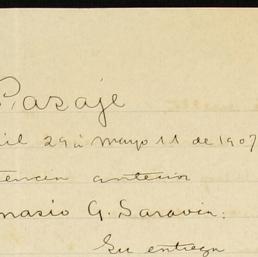 Pasaje
il 29 á Mayo 11 de 1907
tencen anterior
nasio G. Saravia.
Su entrega